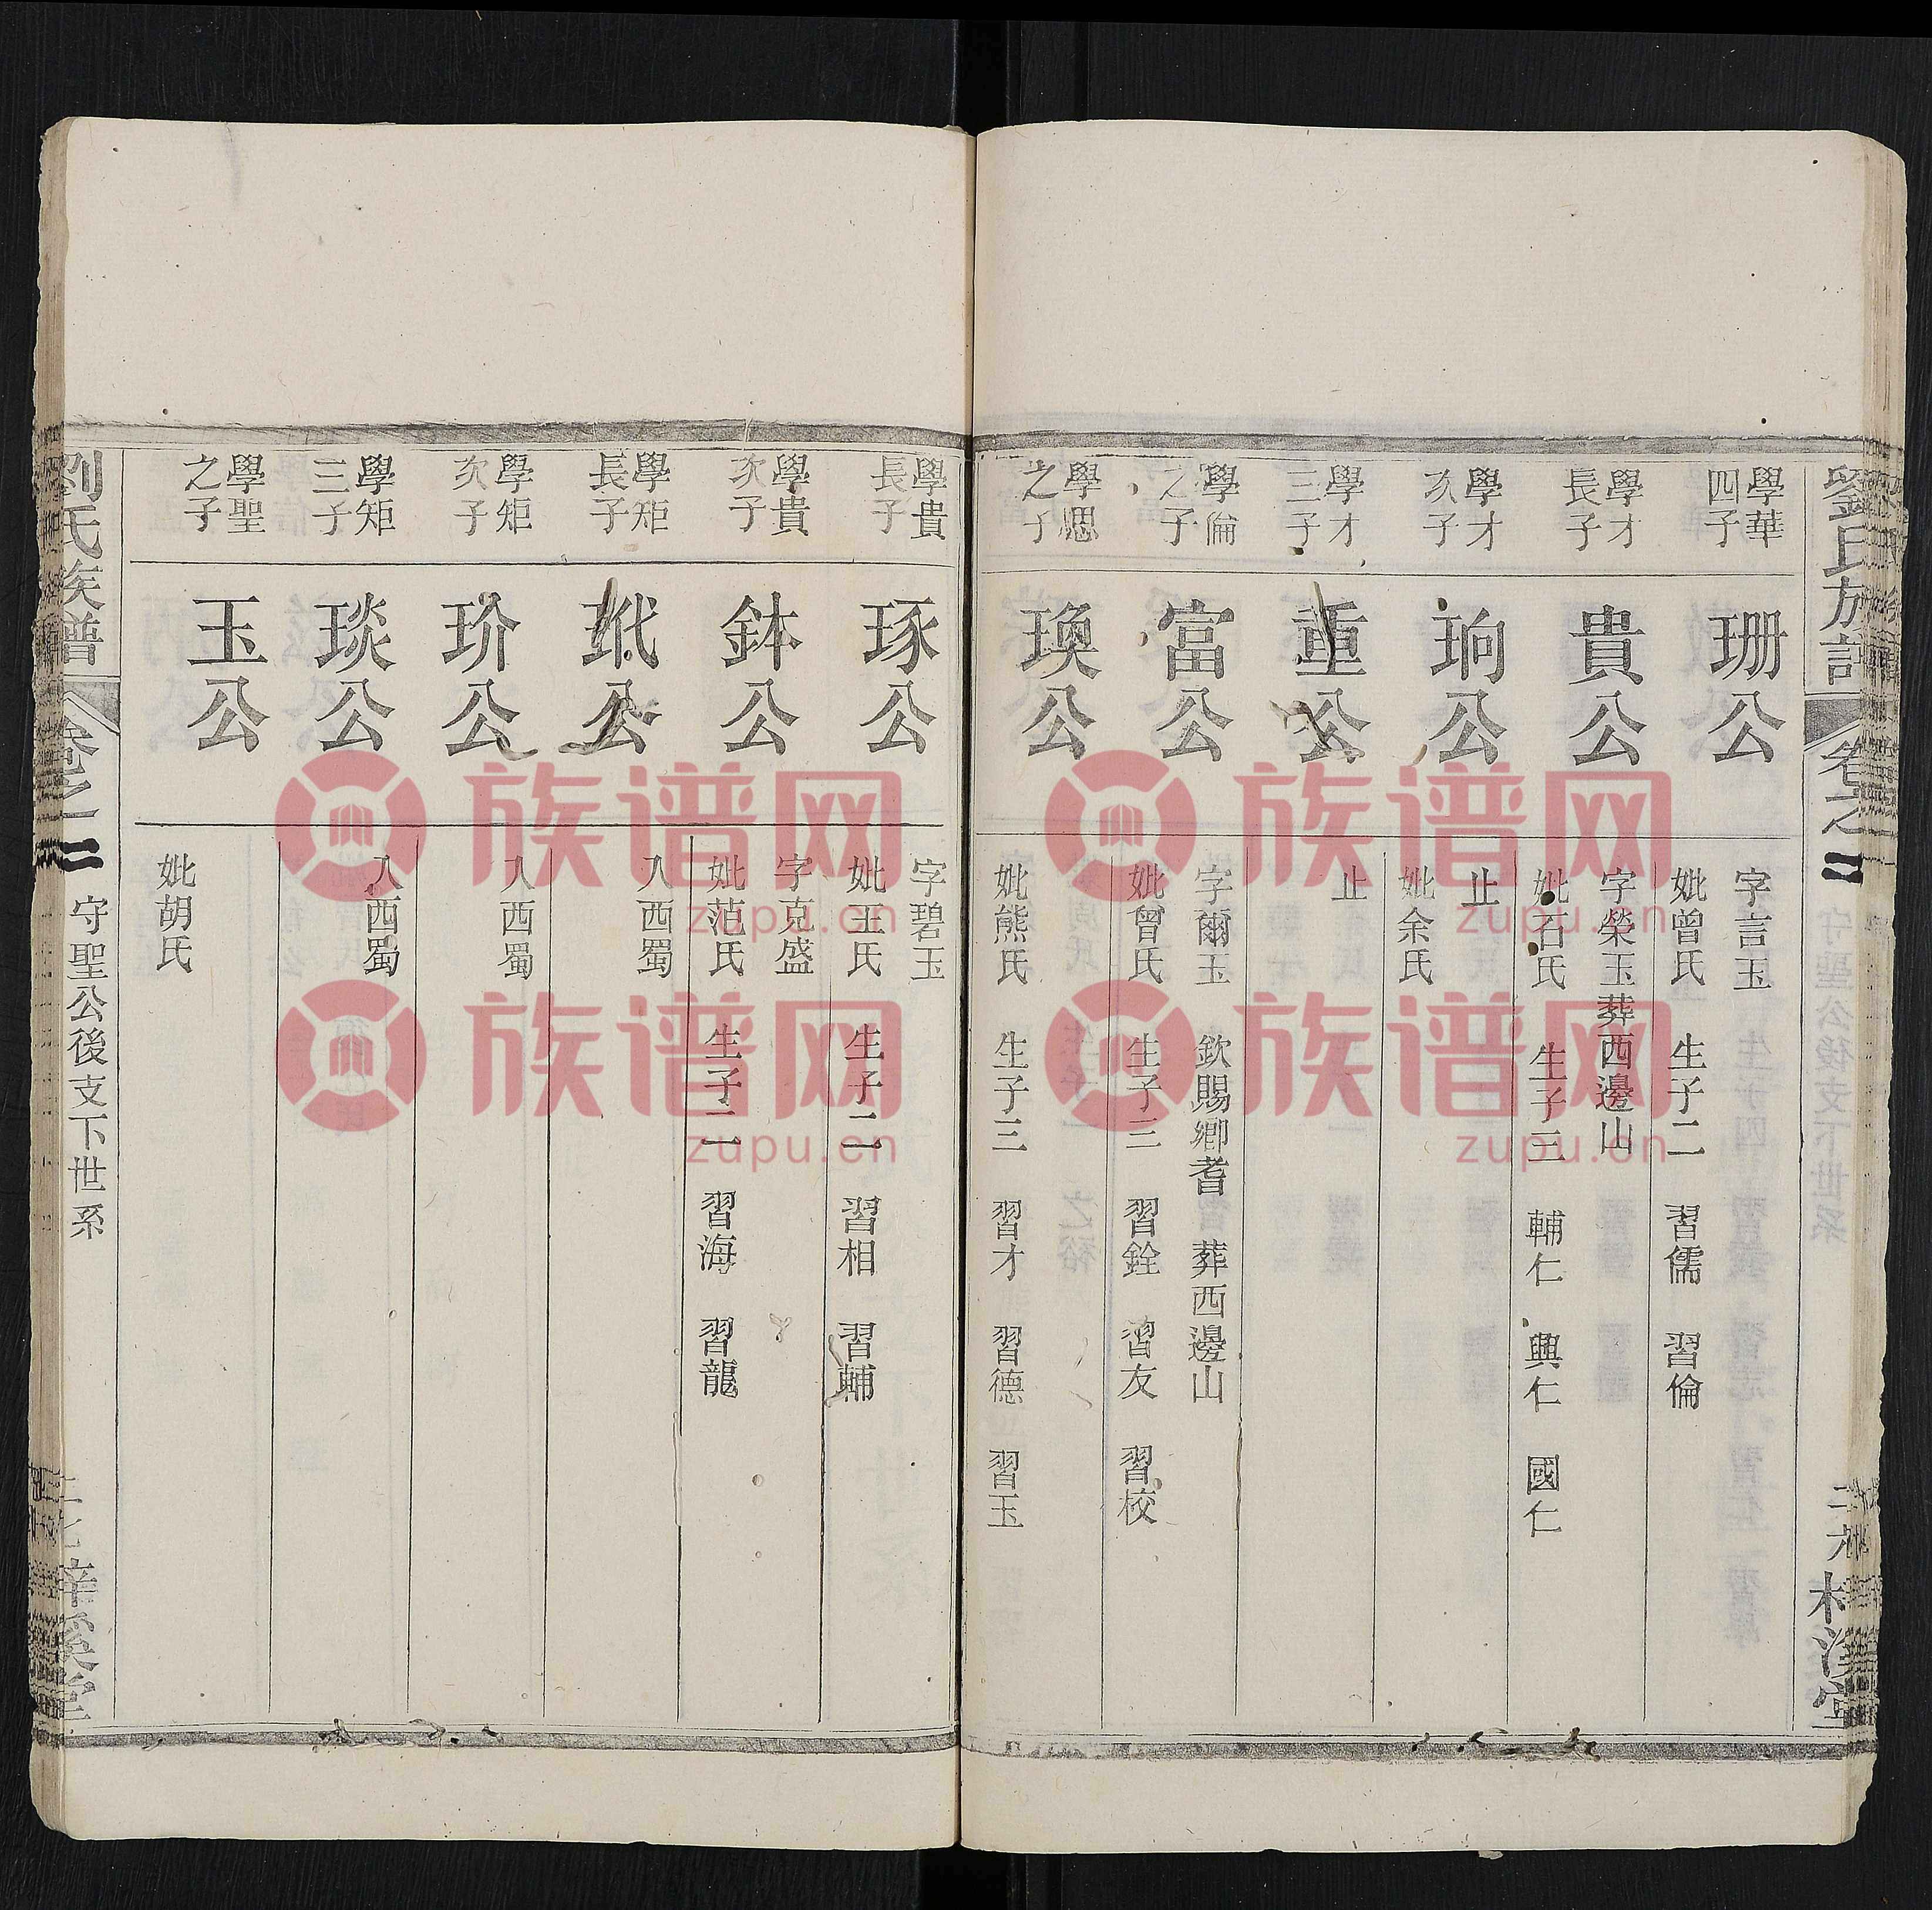 劉氏族譜 卷之二 二六 梓溪堂
學華四子
珊公
字言玉
妣曾氏 生子二 習儒 習倫
學才長子
貴公
字榮玉葬西邊山
妣石氏 生子三 輔仁 興仁 國仁
學才次子
珦公
止
妣余氏
學才三子
重公
止
學倫之子
富公
字爾玉 欽賜鄉耆 葬西邊山
妣曾氏 生子三 習銓 習友 習校
學愢之子
瑍公
妣熊氏 生子三 習才 習德 習玉
學貴長子
琢公
字碧玉
妣王氏 生子二 習相 習輔
學貴次子
鉢公
字克盛
妣范氏 生子二 習海 習龍
學矩長子
玳公
入西蜀
學矩次子
玠公
入西蜀
學矩三子
琰公
入西蜀
學聖之子
玉公
妣胡氏
劉氏族譜 卷之二 守聖公後支下世系 二七 梓溪堂
族谱网
zupu.cn
族谱网
zupu.cn
族谱网
zupu.cn
族谱网
zupu.cn